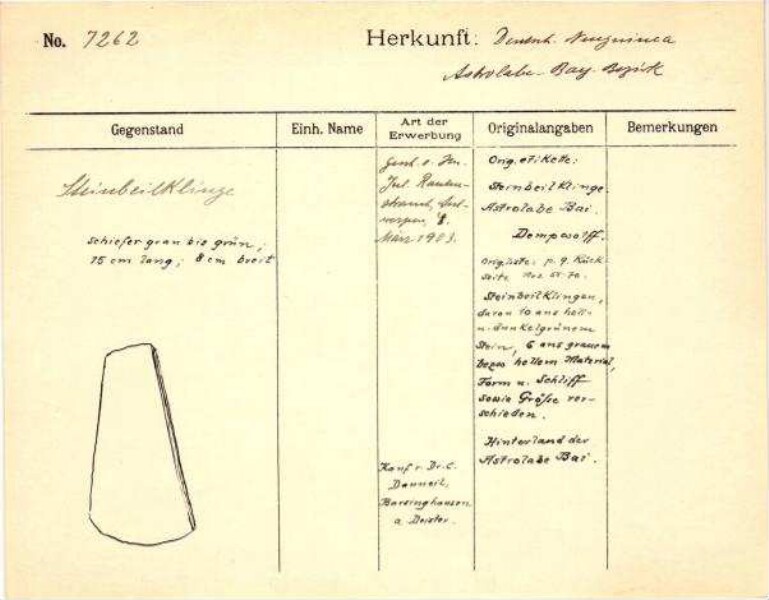 No. 7262
Herkunft: Deutsch. Neuguinea
Astrolabe-Bay-Bezirk
Gegenstand
Einh. Name
Art der
Erwerbung
Originalangaben
Bemerkungen
Steinbeilklinge
schiefer grau bis grün;
15 cm lang; 8 cm breit
Gesch. v. Hrn.
Jul. Rauten-
strauch, Ant-
werpen, 8.
März 1903.
Kauf v. Dr. C.
Danneil,
Barsinghausen
a. Deister.
Orig. etikette:
Steinbeilklinge
Astrolabe Bai.
Dempwolff.
Orig. liste: p. 9. Rück-
seite Nro 55-70.
Steinbeilklingen,
davon 10 aus hell-
u. dunkelgrünem
Stein, 6 aus grauem
bezw hellem Material,
Form u. Schliff
sowie Größe ver-
schieden.
Hinterland der
Astrolabe Bai.